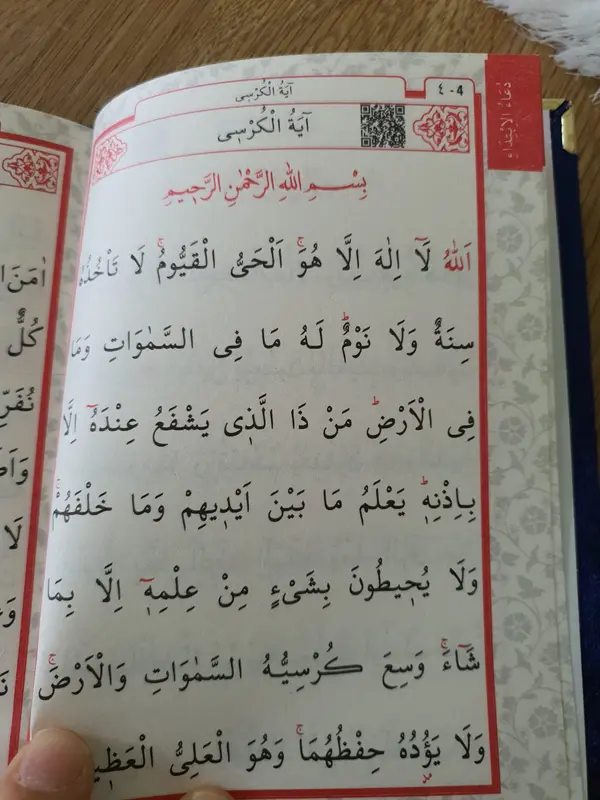 آيَةُ الْكُرْسِى
٤-4
دُعَاءُ الْاِبْتِدَاءِ
آيَةُ الْكُرْسِى
بِسْمِ اللهِ الرَّحْمٰنِ الرَّحِيمِ
اَللهُ لَٓا اِلٰهَ اِلَّا هُوَۚ اَلْحَىُّ الْقَيُّومُۚ لَا تَاْخُذُهُ
سِنَةٌ وَلَا نَوْمٌؕ لَهُ مَا فِى السَّمٰوَاتِ وَمَا
فِى الْاَرْضِؕ مَنْ ذَا الَّذٖى يَشْفَعُ عِنْدَهُٓ اِلَّا
بِاِذْنِهٖؕ يَعْلَمُ مَا بَيْنَ اَيْدٖيهِمْ وَمَا خَلْفَهُمْۚ
وَلَا يُحٖيطُونَ بِشَىْءٍ مِنْ عِلْمِهٖٓ اِلَّا بِمَا
شَٓاءَۚ وَسِعَ كُرْسِيُّهُ السَّمٰوَاتِ وَالْاَرْضَۚ
وَلَا يَؤُدُهُ حِفْظُهُمَاۚ وَهُوَ الْعَلِىُّ الْعَظٖيمُ
اٰمَنَ
كُلٌّ
نُفَرِّ
لَا